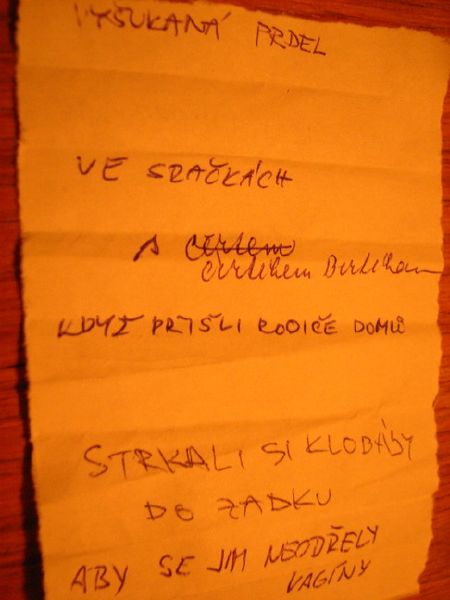 VYŠUKANÁ PRDEL
VE SRAČKÁCH
A čertem
čertíkem Bertíkem
KDYŽ PŘIŠLI RODIČE DOMŮ
STRKALI SI KLOBÁSY
DO ZADKU
ABY SE JIM NEODŘELY
VAGÍNY